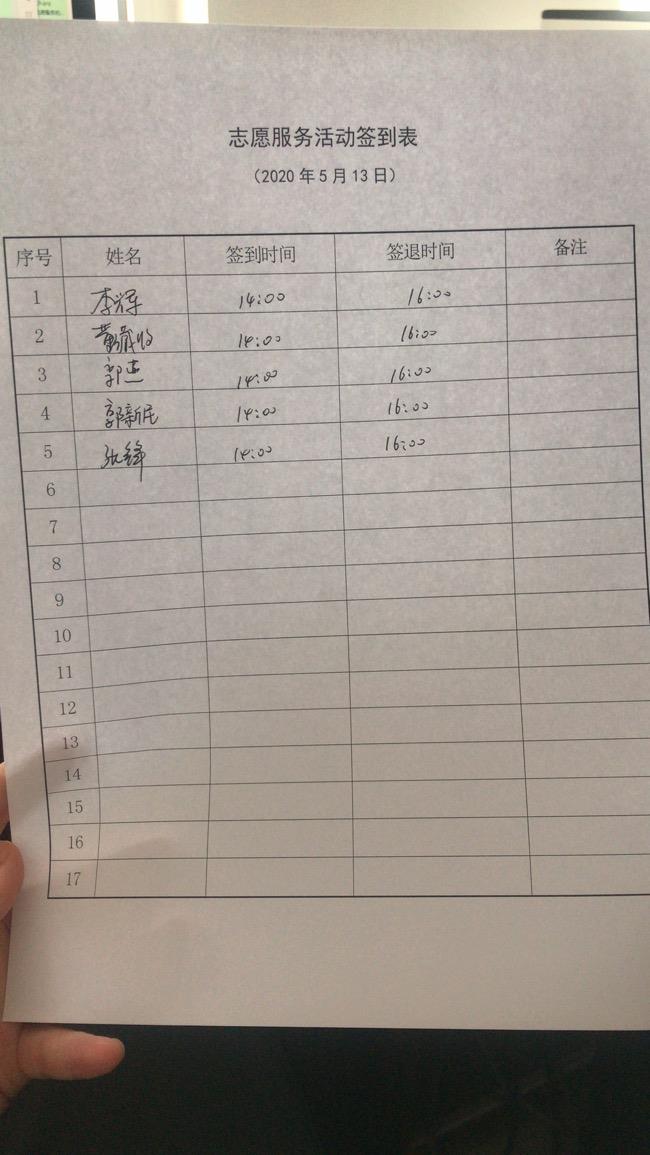 志愿服务活动签到表
（2020年5月13日）
序号 姓名 签到时间 签退时间 备注
1 李辉 14:00 16:00
2 14:00 16:00
3 郭建 14:00 16:00
4 郭新民 14:00 16:00
5 张锋 14:00 16:00
6
7
8
9
10
11
12
13
14
15
16
17